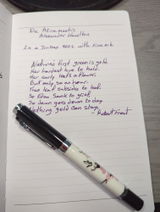 Alexander Hamilton
Nature's first green is gold
Her hardest hue to hold.
Her early leaf's a flower;
But only so an hour.
Then leaf subsides to leaf.
So Eden sank to grief,
So dawn goes down to day.
Nothing gold can stay.
Robert Frost